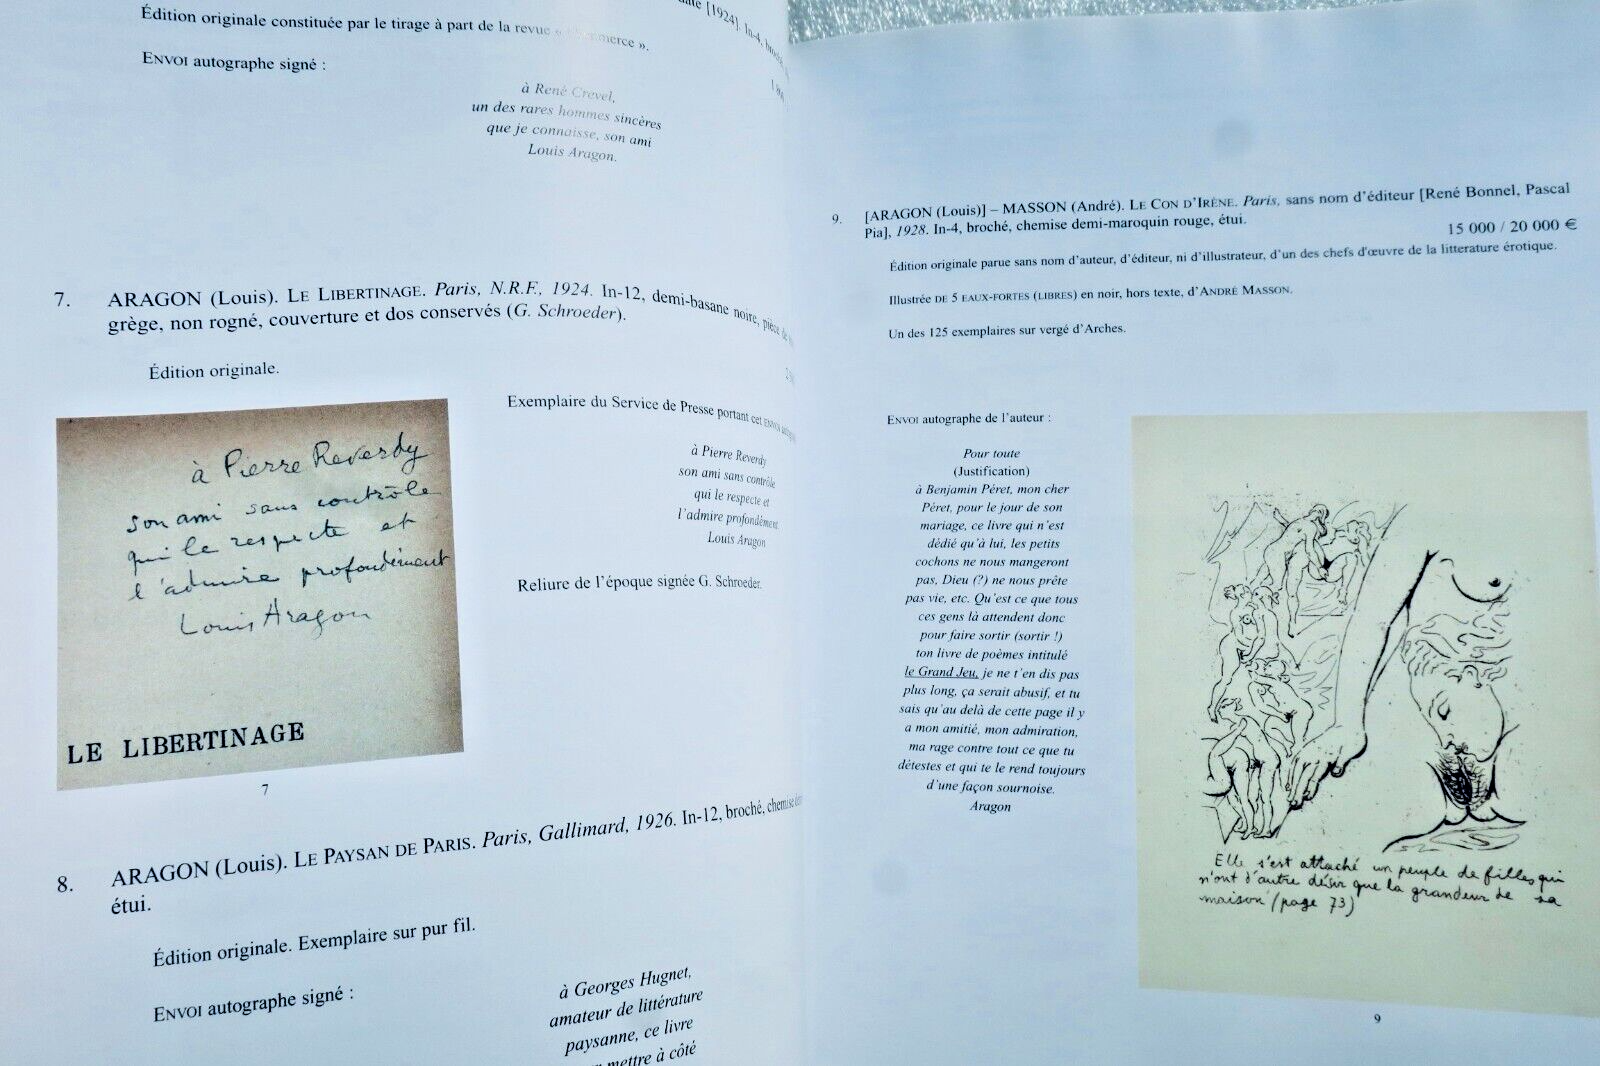 [1924]. In-4, broché,
Édition originale constituée par le tirage à part de la revue « Commerce ».
ENVOI autographe signé :
à René Crevel,
un des rares hommes sincères
que je connaisse, son ami
Louis Aragon.
7. ARAGON (Louis). LE LIBERTINAGE. Paris, N.R.F., 1924. In-12, demi-basane noire, pièce de
grège, non rogné, couverture et dos conservés (G. Schroeder).
Édition originale.
Exemplaire du Service de Presse portant cet ENVOI
à Pierre Reverdy
son ami sans contrôle
qui le respecte et
l'admire profondément
Louis Aragon
Reliure de l'époque signée G. Schroeder.
à Pierre Reverdy
son ami sans contrôle
qui le respecte et
l'admire profondément
Louis Aragon
LE LIBERTINAGE
7
8. ARAGON (Louis). LE PAYSAN DE PARIS. Paris, Gallimard, 1926. In-12, broché, chemise
étui.
Édition originale. Exemplaire sur pur fil.
ENVOI autographe signé :
à Georges Hugnet,
amateur de littérature
paysanne, ce livre
mettre à côté
9. [ARAGON (Louis)] – MASSON (André). LE CON D'IRÈNE. Paris, sans nom d'éditeur [René Bonnel, Pascal
Pia], 1928. In-4, broché, chemise demi-maroquin rouge, étui.
15 000 / 20 000 €
Édition originale parue sans nom d'auteur, d'éditeur, ni d'illustrateur, d'un des chefs d'œuvre de la litterature érotique.
Illustrée DE 5 EAUX-FORTES (LIBRES) en noir, hors texte, d'ANDRÉ MASSON.
Un des 125 exemplaires sur vergé d'Arches.
ENVOI autographe de l'auteur :
Pour toute
(Justification)
à Benjamin Péret, mon cher
Péret, pour le jour de son
mariage, ce livre qui n'est
dédié qu'à lui, les petits
cochons ne nous mangeront
pas, Dieu (?) ne nous prête
pas vie, etc. Qu'est ce que tous
ces gens là attendent donc
pour faire sortir (sortir !)
ton livre de poèmes intitulé
le Grand Jeu, je ne t'en dis pas
plus long, ça serait abusif, et tu
sais qu'au delà de cette page il y
a mon amitié, mon admiration,
ma rage contre tout ce que tu
détestes et qui te le rend toujours
d'une façon sournoise.
Aragon
Elle s'est attaché un peuple de filles qui
n'ont d'autre désir que la grandeur de sa
maison (page 73)
9